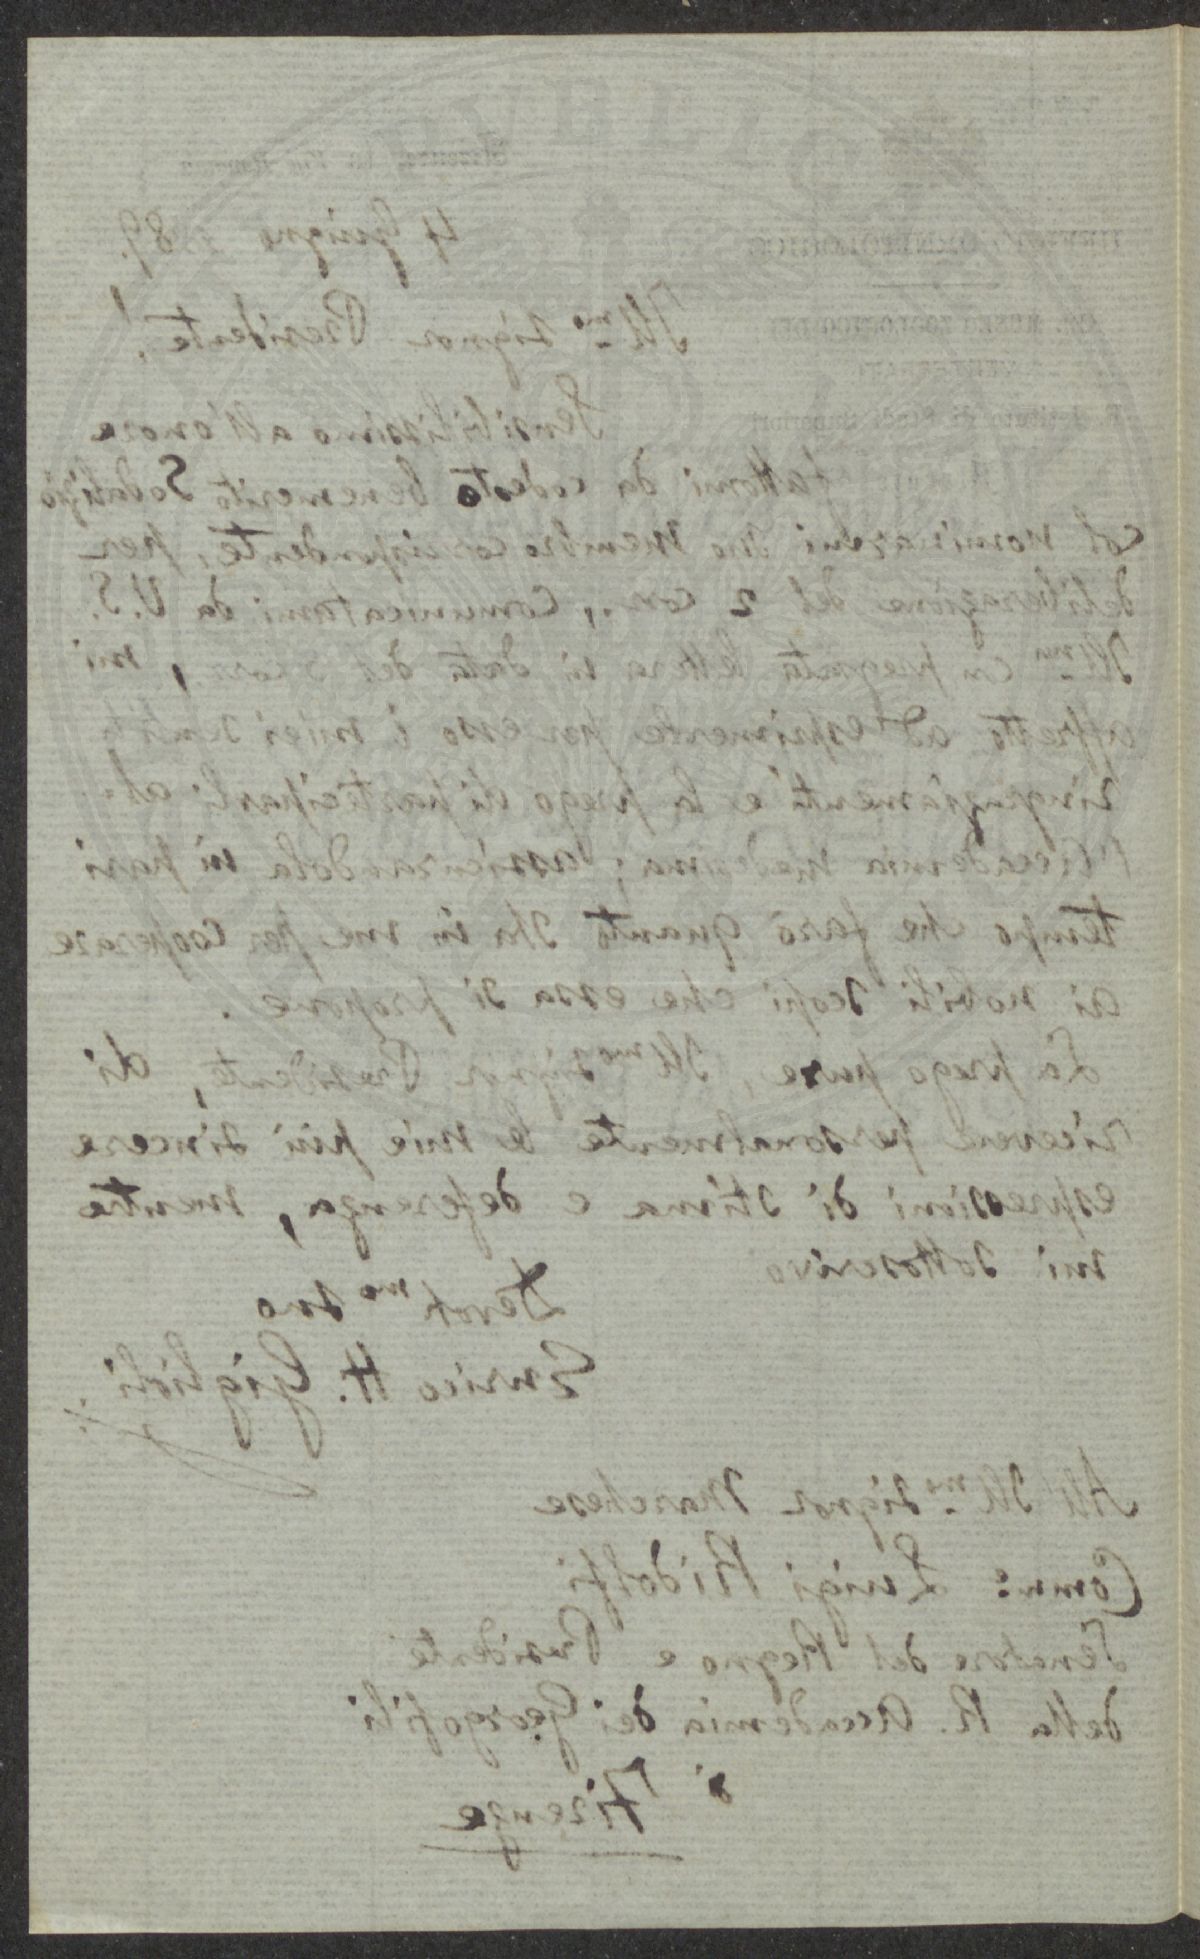 Firenze, 19 Via Romana
4 Giugno 1889.
DIREZIONE
DEL MUSEO ZOOLOGICO DEI
VERTEBRATI
R. Istituto di Studi Superiori
Ill.mo Signor Presidente!
Sensibilissimo all'onore
fattomi da codesto benemerito Sodalizio
col nominarmi suo Membro corrispondente, per
deliberazione del 2 corr., comunicatami da V. S.
Ill.ma in pregiata lettera in data del 3 corr., mi
affretto ad esprimerle per esso i miei sentiti
ringraziamenti e la prego di parteciparli al-
l'Accademia medesima; assicurandola in pari
tempo che farò quanto sta in me per cooperare
ai nobili scopi che essa si propone.
La prego pure, Ill.mo Signor Presidente, di
ricevere personalmente le mie più sincere
espressioni di stima e deferenza, mentre
mi sottoscrivo
Devot.mo suo
Enrico H. Giglioli
All' Ill.mo Signor Marchese
Comm: Luigi Ridolfi
Senatore del Regno e Presidente
della R. Accademia dei Georgofili
di Firenze